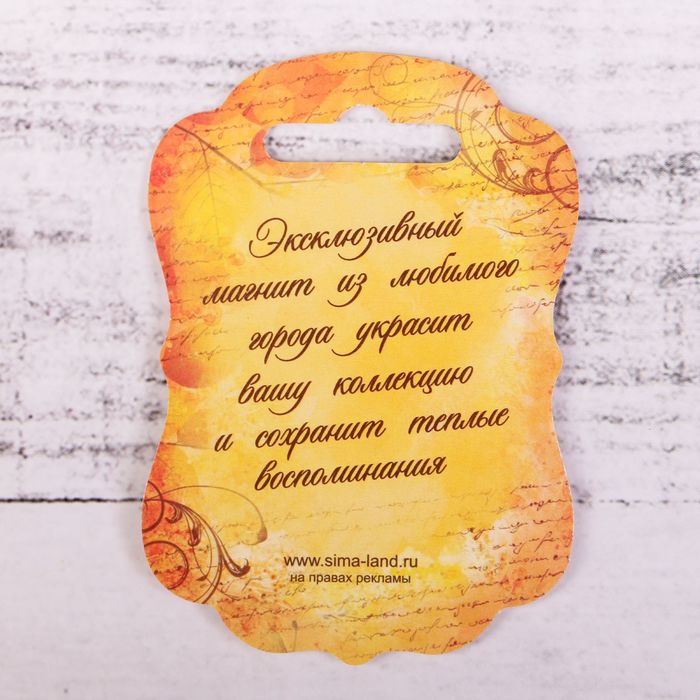 Эксклюзивный
магнит из любимого
города украсит
вашу коллекцию
и сохранит теплые
воспоминания
www.sima-land.ru
на правах рекламы